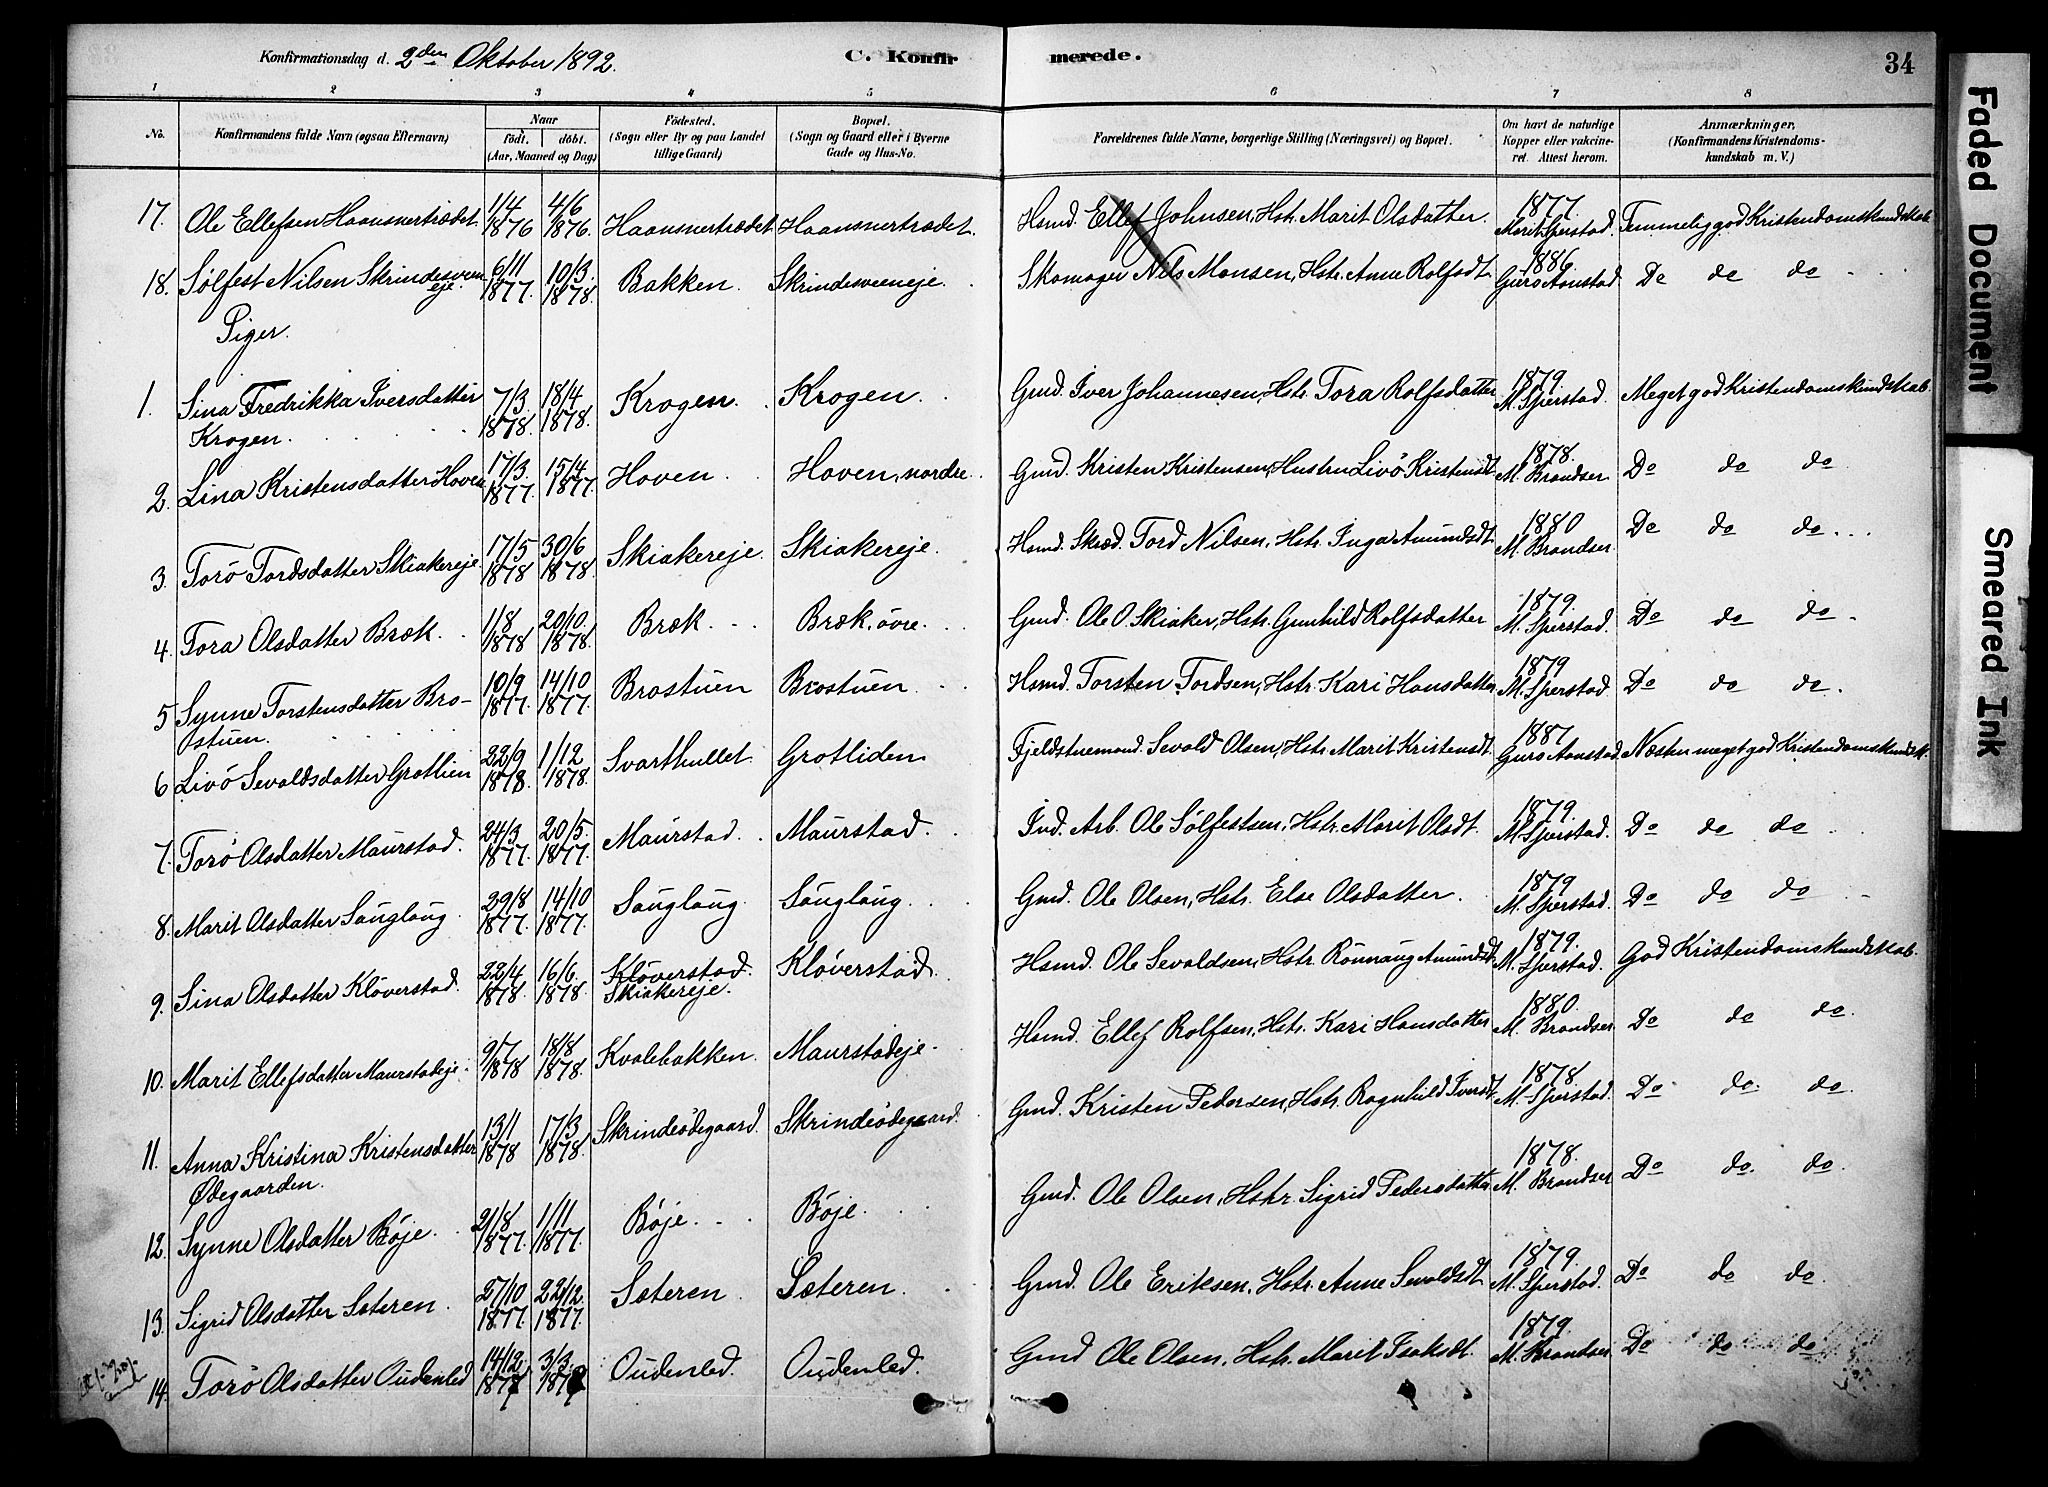 Konfirmationsdag d. 2den Oktober 1892.
C. Konfirmerede.
34
1 2 3 4 5 6 7 8
No. Konfirmandens fulde Navn (ogsaa Efternavn) Naar født. døbt. (Aar, Maaned og Dag) Födested. (Sogn eller By og paa Landet tillige Gaard) Bopæl. (Sogn og Gaard eller i Byerne Gade og Hus-No. Forældrenes fulde Navne, borgerlige Stilling (Næringsvei) og Bopæl. Om havt de naturlige Kopper eller vakcineret. Attest herom. Anmærkninger, (Konfirmandens Kristendomskundskab m. V.)
17. Ole Ellefsen Haansnertrædet 1/4 1876 4/6 1876. Haansnertrædet Haansnertrædet. Hsmd. Ellef Johnsen, Hstr. Marit Olsdatter. 1877. Marit Sperstad. Temmelig god Kristendomskundskab
18. Sølfest Nilsen Skrindesveen eje. 6/11 1877. 10/3 1878. Bakken. Skrindesveeneje. Skomager Nils Monsen, Hstr. Anne Rolfsdt. 1886 Guro Aanstad. Do do do
Piger.
1. Sina Fredrikka Iversdatter Krogen. 7/3 1878. 18/4 1878. Krogen. Krogen Gmd. Iver Johannesen, Hstr. Tora Rolfsdatter 1879 M. Sperstad. Meget god Kristendomskundskab.
2. Lina Kristensdatter Hoven 17/3 1877. 15/4 1877. Hoven Hoven, nordre. Gmd. Kristen Kristensen, Hustru Livö Kristensdt. 1878. M. Brandser Do do do
3. Torö Tordsdatter Skiakereje. 17/5 1878 30/6 1878. Skiakereje. Skiakereje. Hsmd. Skræd. Tord Nilsen, Hstr. Inga Amundsdt. 1880 M. Brandser. Do do do
4. Tora Olsdatter Bræk. 1/8 1878 20/10 1878. Bræk. Bræk, övre. Gmd. Ole O. Skiaker, Hstr. Gunhild Rolfsdatter 1879. M. Sperstad. Do do do
5 Synne Torstensdatter Brostuen. 10/9 1877. 14/10 1877. Brostuen Brostuen. Hsmd. Torsten Tordsen, Hstr. Kari Hansdatter 1879 M. Sperstad. Do do do.
6 Livö Sevaldsdatter Grotlien 22/9 1878. 1/12 1878. Svarthullet. Grotliden Fjeldstuemand. Sevald Olsen, Hstr. Marit Kristensdt. 1887 Guro Aanstad Næsten meget god Kristendomskundsk.
7. Torö Olsdatter Maurstad. 24/3 1877. 20/5. 1877. Maurstad. Maurstad. Ind. Arb. Ole Sølfestsen, Hstr. Marit Olsdt. 1879. M. Sperstad. Do do do
8. Marit Olsdatter Sauglaug 29/8 1877. 14/10 1877. Sauglaug. Sauglaug. Gmd. Ole Olsen, Hstr. Else Olsdatter. 1879 M. Sperstad. Do do do
9. Sina Olsdatter Klöverstad. 22/4 1878. 16/6. 1878. Klöverstad. Skiakereje. Klöverstad. Hsmd. Ole Sevaldsen, Hstr. Rönnaug Amundsdt. 1879. M. Sperstad. God Kristendomskundskab.
10. Marit Ellefsdatter Maurstadeje. 9/7 1878 18/8 1878. Kvalebakken. Maurstadeje. Hsmd. Ellef Rolfsen, Hstr. Kari Hansdatter 1880. M. Brandser Do do do.
11. Anna Kristina Kristensdatter Ødegaarden. 13/1 1878 17/3 1878. Skrindeödegaard. Skrindeödegaard. Gmd. Kristen Pedersen, Hstr. Ragnhild Iversdt. 1878. M. Sperstad. Do do. do.
12. Synne Olsdatter Böje. 21/8 1877. 1/11 1877. Böje. Böje. Gmd. Ole Olsen, Hstr. Sigrid Pedersdatter 1878. M. Brandser Do do. do.
13. Sigrid Olsdatter Sæteren. 27/10 1877. 22/12. 1877. Sæteren. Sæteren. Gmd. Ole Eriksen, Hstr. Anne Sevaldsdt. 1879. M. Sperstad. Do do do.
14. Torö Olsdatter Oudenled 14/12 3/3 Oudenled. Oudenled. Gmd Ole Olsen, Hstr. Marit Isaksdt. 1879. M. Brandser Do do do
Faded Document
Smeared Ink